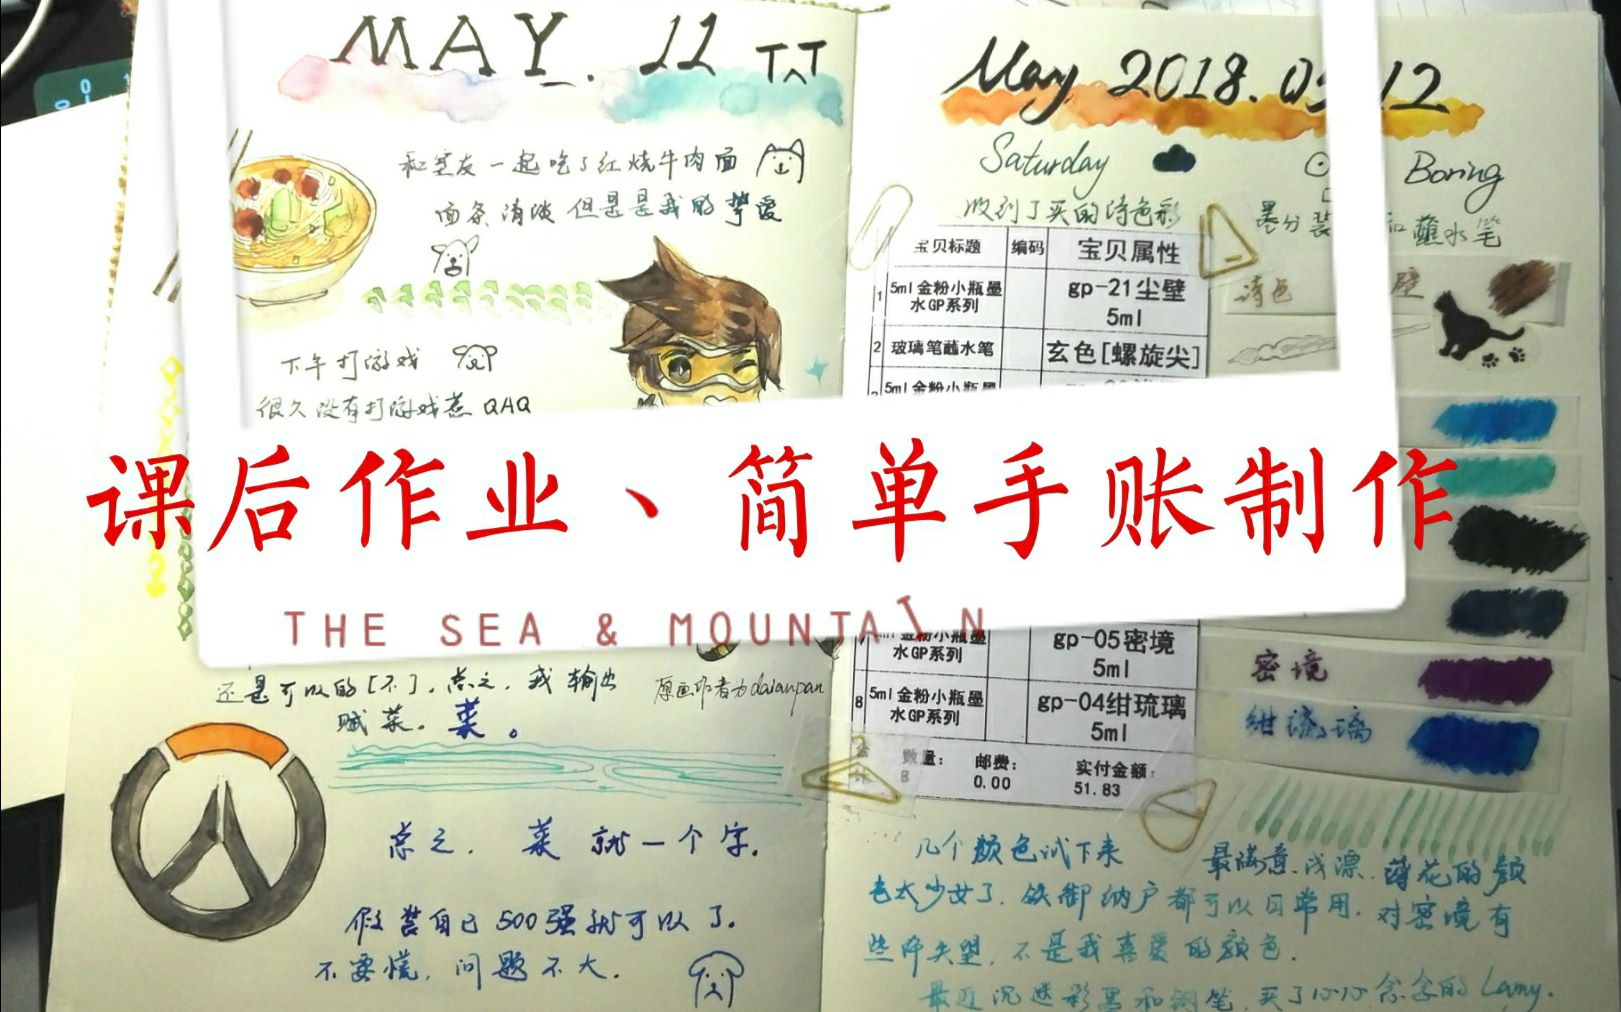 MAY. 11 TAT
和室友一起吃了红烧牛肉面
面条清淡但是是我的挚爱
下午打游戏
很久没有打游戏惹 QAQ
May 2018.05.12
Saturday
Boring
收到了买的诗色彩
墨分装
和蘸水笔
宝贝标题 编码 宝贝属性
1 5ml金粉小瓶墨水GP系列 gp-21尘壁 5ml
2 玻璃笔蘸水笔 玄色[螺旋尖]
5ml金粉小瓶墨
诗色
壁
课后作业、简单手账制作
THE SEA & MOUNTAIN
还是可以的[不]。总之,我输出
贼菜。菜。
原画作者为daianpan
金粉小瓶墨水GP系列 gp-05密境 5ml
8 5ml金粉小瓶墨水GP系列 gp-04绀琉璃 5ml
数量: 8 邮费: 0.00 实付金额: 51.83
密境
绀琉璃
总之,菜就一个字。
假装自己500强就可以了。
不要慌,问题不大。
几个颜色试下来
最满意.浅漂.薄花的颜
色太少女了.铁御纳户都可以日常用.对密境有
些许失望.不是我喜爱的颜色.
最近沉迷彩墨和钢笔.买了心心念念的Lamy.